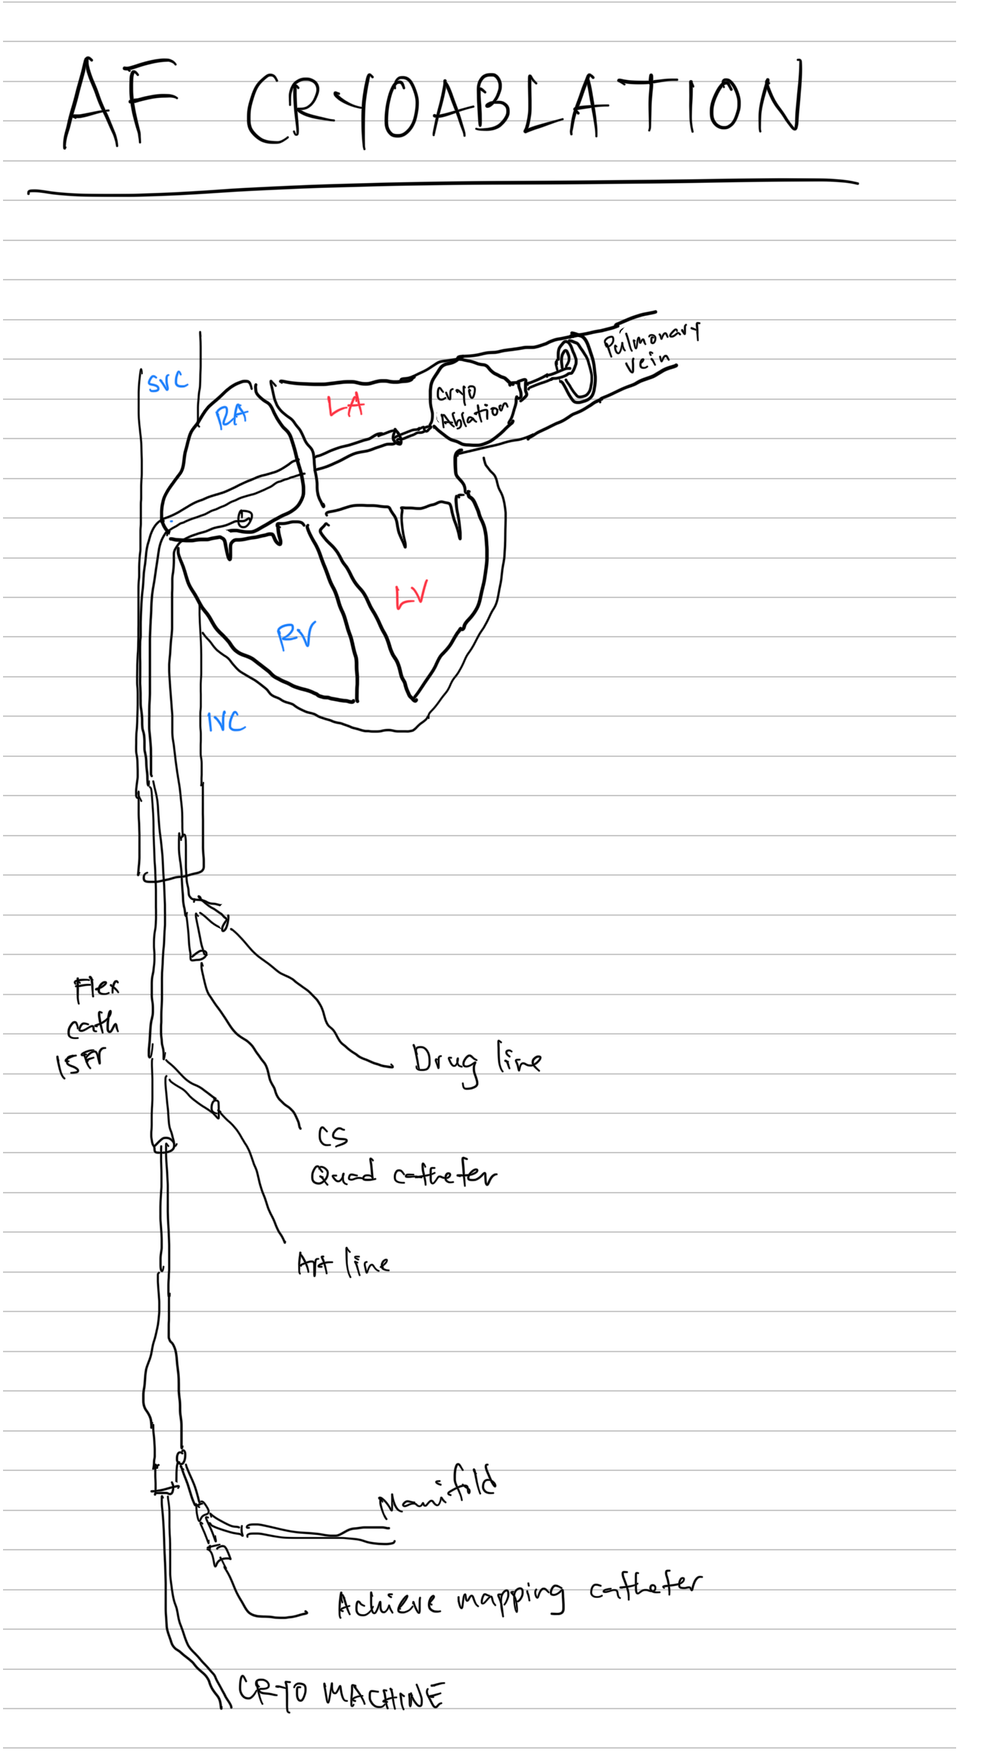 AF CRYOABLATION
SVC
RA
LA
Cryo
Ablation
Pulmonary
vein
LV
RV
IVC
Flex
cath
15Fr
Drug line
CS
Quad catheter
Art line
Manifold
Achieve mapping catheter
CRYO MACHINE